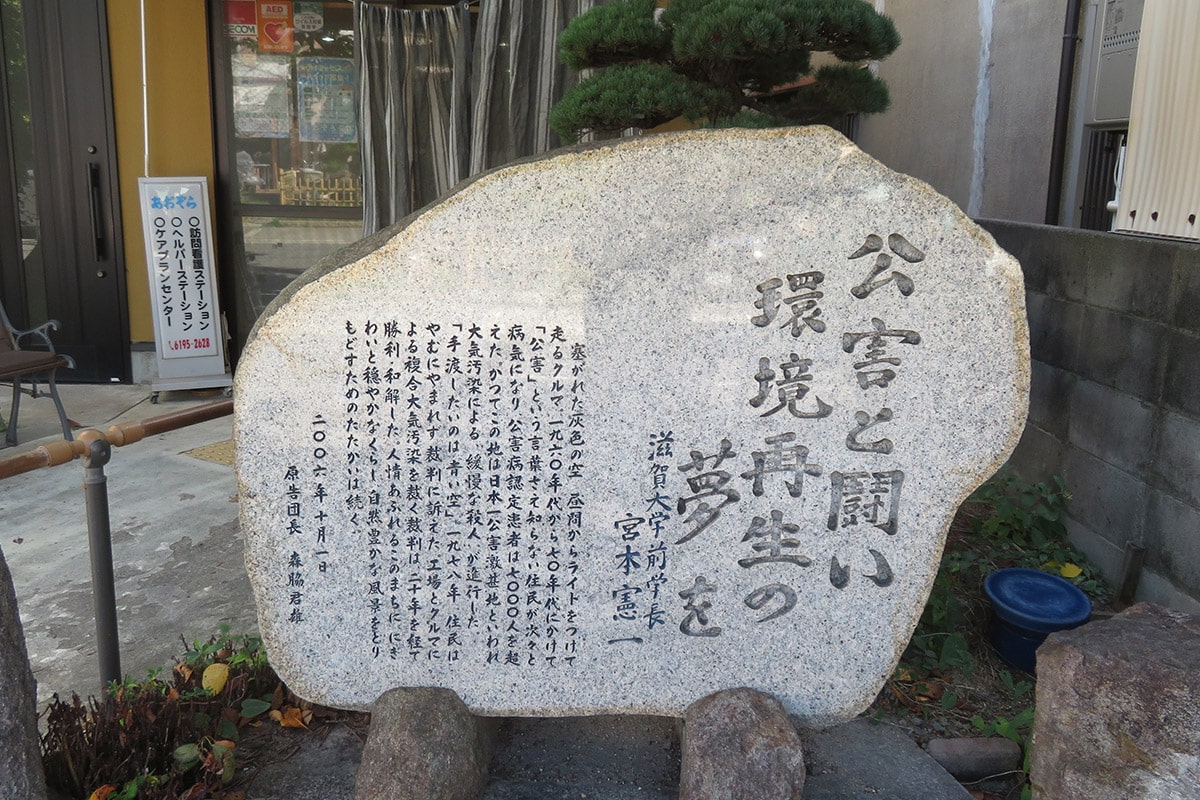 公害と闘い
環境再生の
夢を
滋賀大学前学長
宮本憲一
塞がれた灰色の空 昼間からライトをつけて
走るクルマ 一九六〇年代から七〇年代にかけて
「公害」という言葉さえ知らない住民が次々と
病気になり公害病認定患者は七〇〇〇人を超
えた。かつてこの地は日本一公害激甚地といわれ
大気汚染による、緩慢な殺人、が進行した。
「手渡したいのは青い空」一九七八年 住民は
やむにやまれず裁判に訴えた 工場とクルマに
よる複合大気汚染を裁く裁判は、二十年を経て
勝利・和解した。人情あふれるこのまちに にぎ
わいと穏やかなくらし 自然豊かな風景をとり
もどすためのたたかいは続く。
二〇〇六年 十月一日
原告団長 森脇君雄
あおぞら
〇訪問看護ステーション
〇ヘルパーステーション
〇ケアプランセンター
6195-2628
AED
SECOM